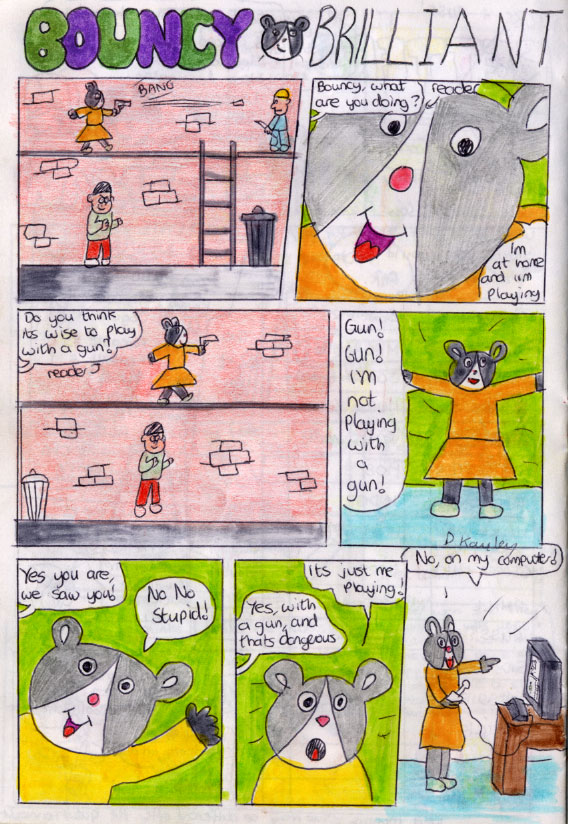 BOUNCY BRILLIANT
BANG
Bouncy, what
are you doing?
reader
Im
at home
and um
Playing
Do you think
its wise to play
with a gun?
reader
Gun!
Gun!
I'M
not
Playing
with
a
gun!
D Kayley
Yes you are,
we saw you!
No No
Stupid!
Its just me
Playing!
Yes, with
a gun, and
thats dangeous
No, on my computer!